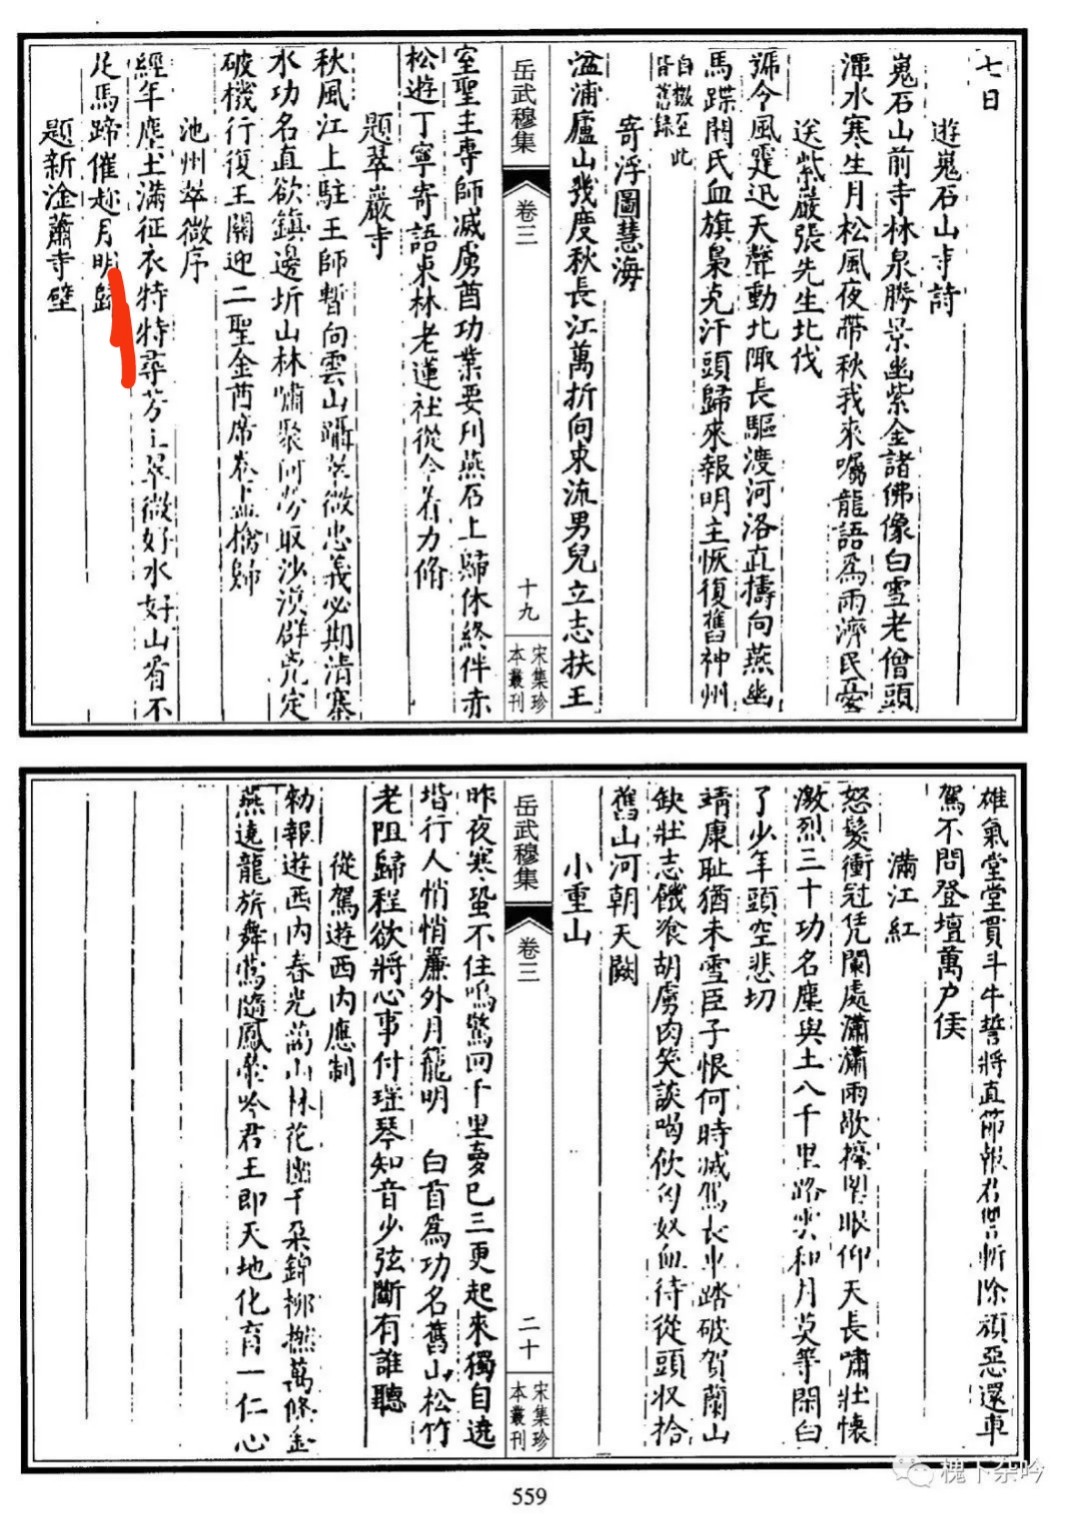 七日
遊嵬石山寺詩
嵬石山前寺林泉勝景幽紫金諸佛像白雪老僧頭
潭水寒生月松風夜帶秋我來囑龍語爲雨濟民憂
送紫巖張先生北伐
號令風霆迅天聲動北陬長驅渡河洛直擣向燕幽
馬蹀閼氏血旗梟克汗頭歸來報明主恢復舊神州
自檄至此
皆舊錄
寄浮圖慧海
湓浦廬山幾度秋長江萬折向東流男兒立志扶王
岳武穆集
卷三
十九
宋集珍
本叢刊
室聖主專師滅虜酋功業要刋燕石上歸休終伴赤
松遊丁寧寄語東林老蓮社從今着力脩
題翠巖寺
秋風江上駐王師暫向雲山躡翠微忠義必期清塞
水功名直欲鎮邊圻山林嘯聚何勞取沙漠群兇定
破機行復王關迎二聖金酋席卷盡擒歸
池州翠微序
經年塵土滿征衣特特尋芳上翠微好水好山看不
足馬蹄催趂月明歸
題新淦蕭寺壁
雄氣堂堂貫斗牛誓將直節報君讐斬除頑惡還車
駕不問登壇萬戶侯
滿江紅
怒髮衝冠凭闌處瀟瀟雨歇擡望眼仰天長嘯壯懷
激烈三十功名塵與土八千里路雲和月莫等閑白
了少年頭空悲切
靖康耻猶未雪臣子恨何時滅駕長車踏破賀蘭山
缺壯志饑飡胡虜肉笑談喝飲匈奴血待從頭収拾
舊山河朝天闕
小重山
岳武穆集
卷三
二十
宋集珍
本叢刊
昨夜寒蛩不住鳴驚回千里夢已三更起來獨自遶
堦行人悄悄簾外月籠明 白首爲功名舊山松竹
老阻歸程欲將心事付瑤琴知音少弦斷有誰聽
從駕遊西内應制
勑報遊西内春光藹山林花圍千朶錦柳撚萬條金
燕遶龍旂舞鶯隨鳳輦吟君王即天地化育一仁心
559
槐下杂吟